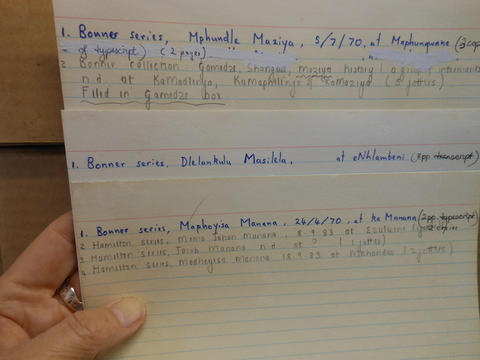 1. Bonner series, Mphundle Maziya, 5/7/70, at Maphungwane (2 cop
- of typescript) (2 pages)
2 Bonner collection Gamedze, Shongwe, Maziya history / a group of interviews
n.d. at KaMadlinja, & KaMaziya (5 jottrs)
Filed in Gamedze box
1. Bonner series, Dlelankulu Masilela, at eNhlambeni (3pp. transcript)
1. Bonner series, Maphoyisa Manana, 24/4/70, at ka Manana (2pp. typescript)
2 Hamilton series, Manana, 8.9.83 at Ezulwini 2 copies
3 Hamilton series, Jacob Manana n.d. at ? (1 jottrs)
4 Hamilton series, Manana 18.9.83 at (2 jottrs)